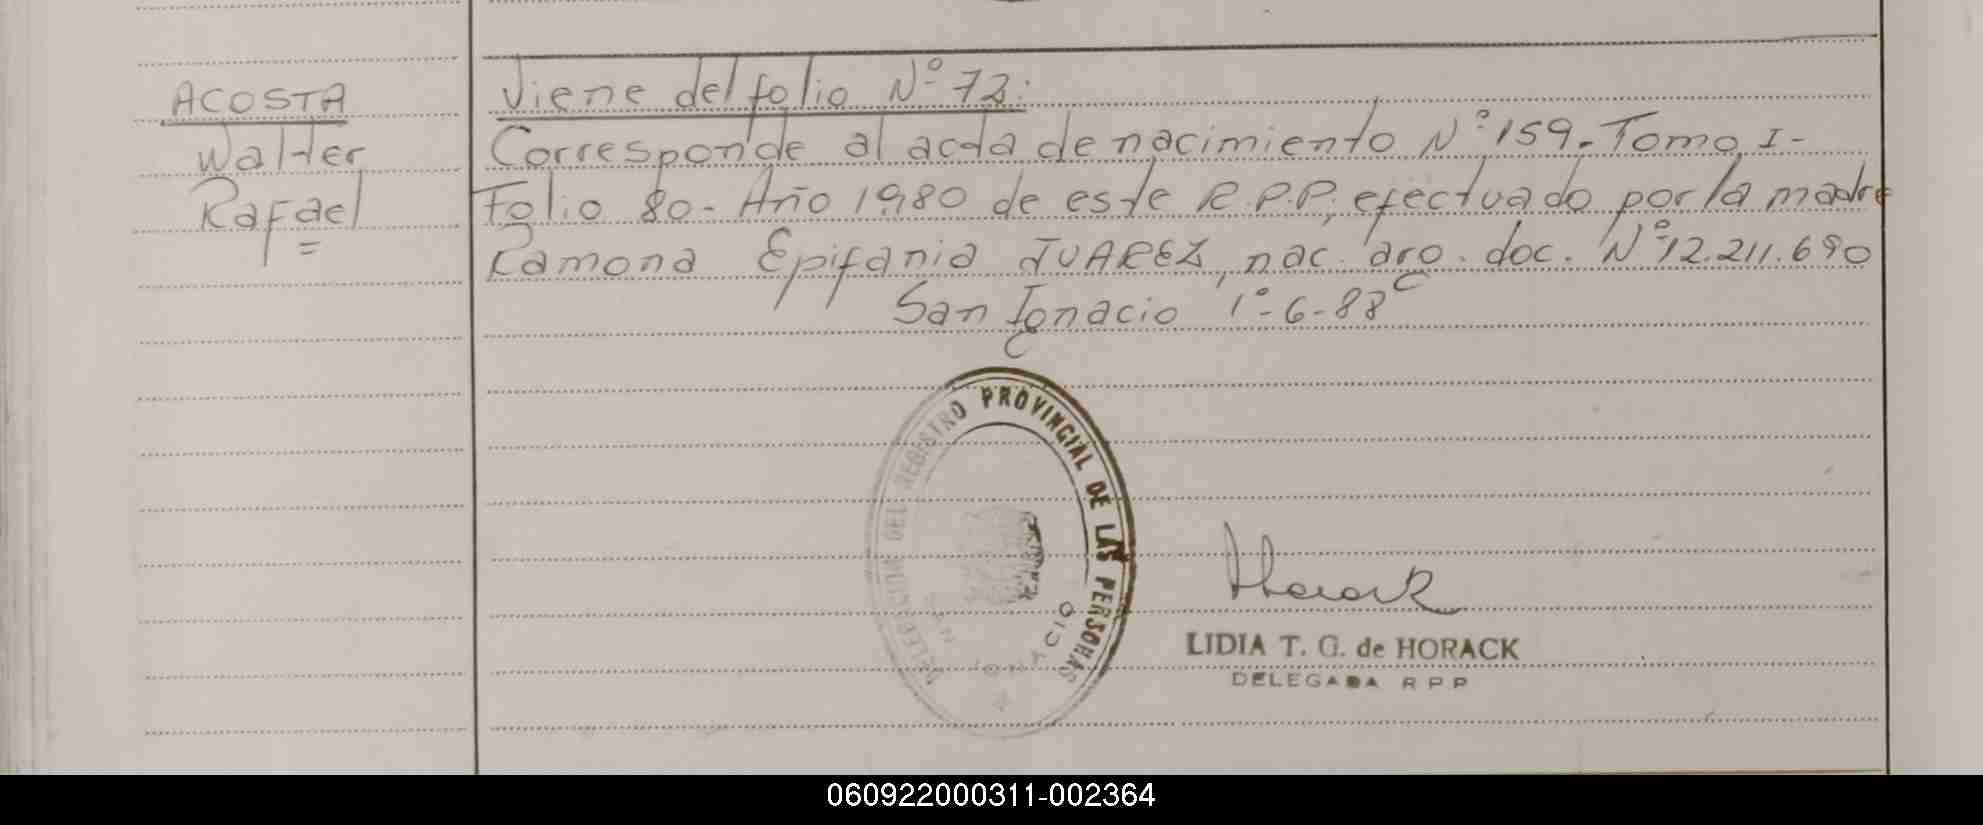 ACOSTA
Walter
Rafael
Viene del folio N° 72:
Corresponde al acta de nacimiento N° 159. Tomo I-
Folio 80- Año 1980 de este R.P.P, efectuado por la madre
Ramona Epifania JUAREZ, nac. arg. doc. N° 12.211.690
San Ignacio 1°-6-88
DELEGACION DEL REGISTRO PROVINCIAL DE LAS PERSONAS
SAN IGNACIO
Horack
LIDIA T. G. de HORACK
DELEGADA R P P
060922000311-002364